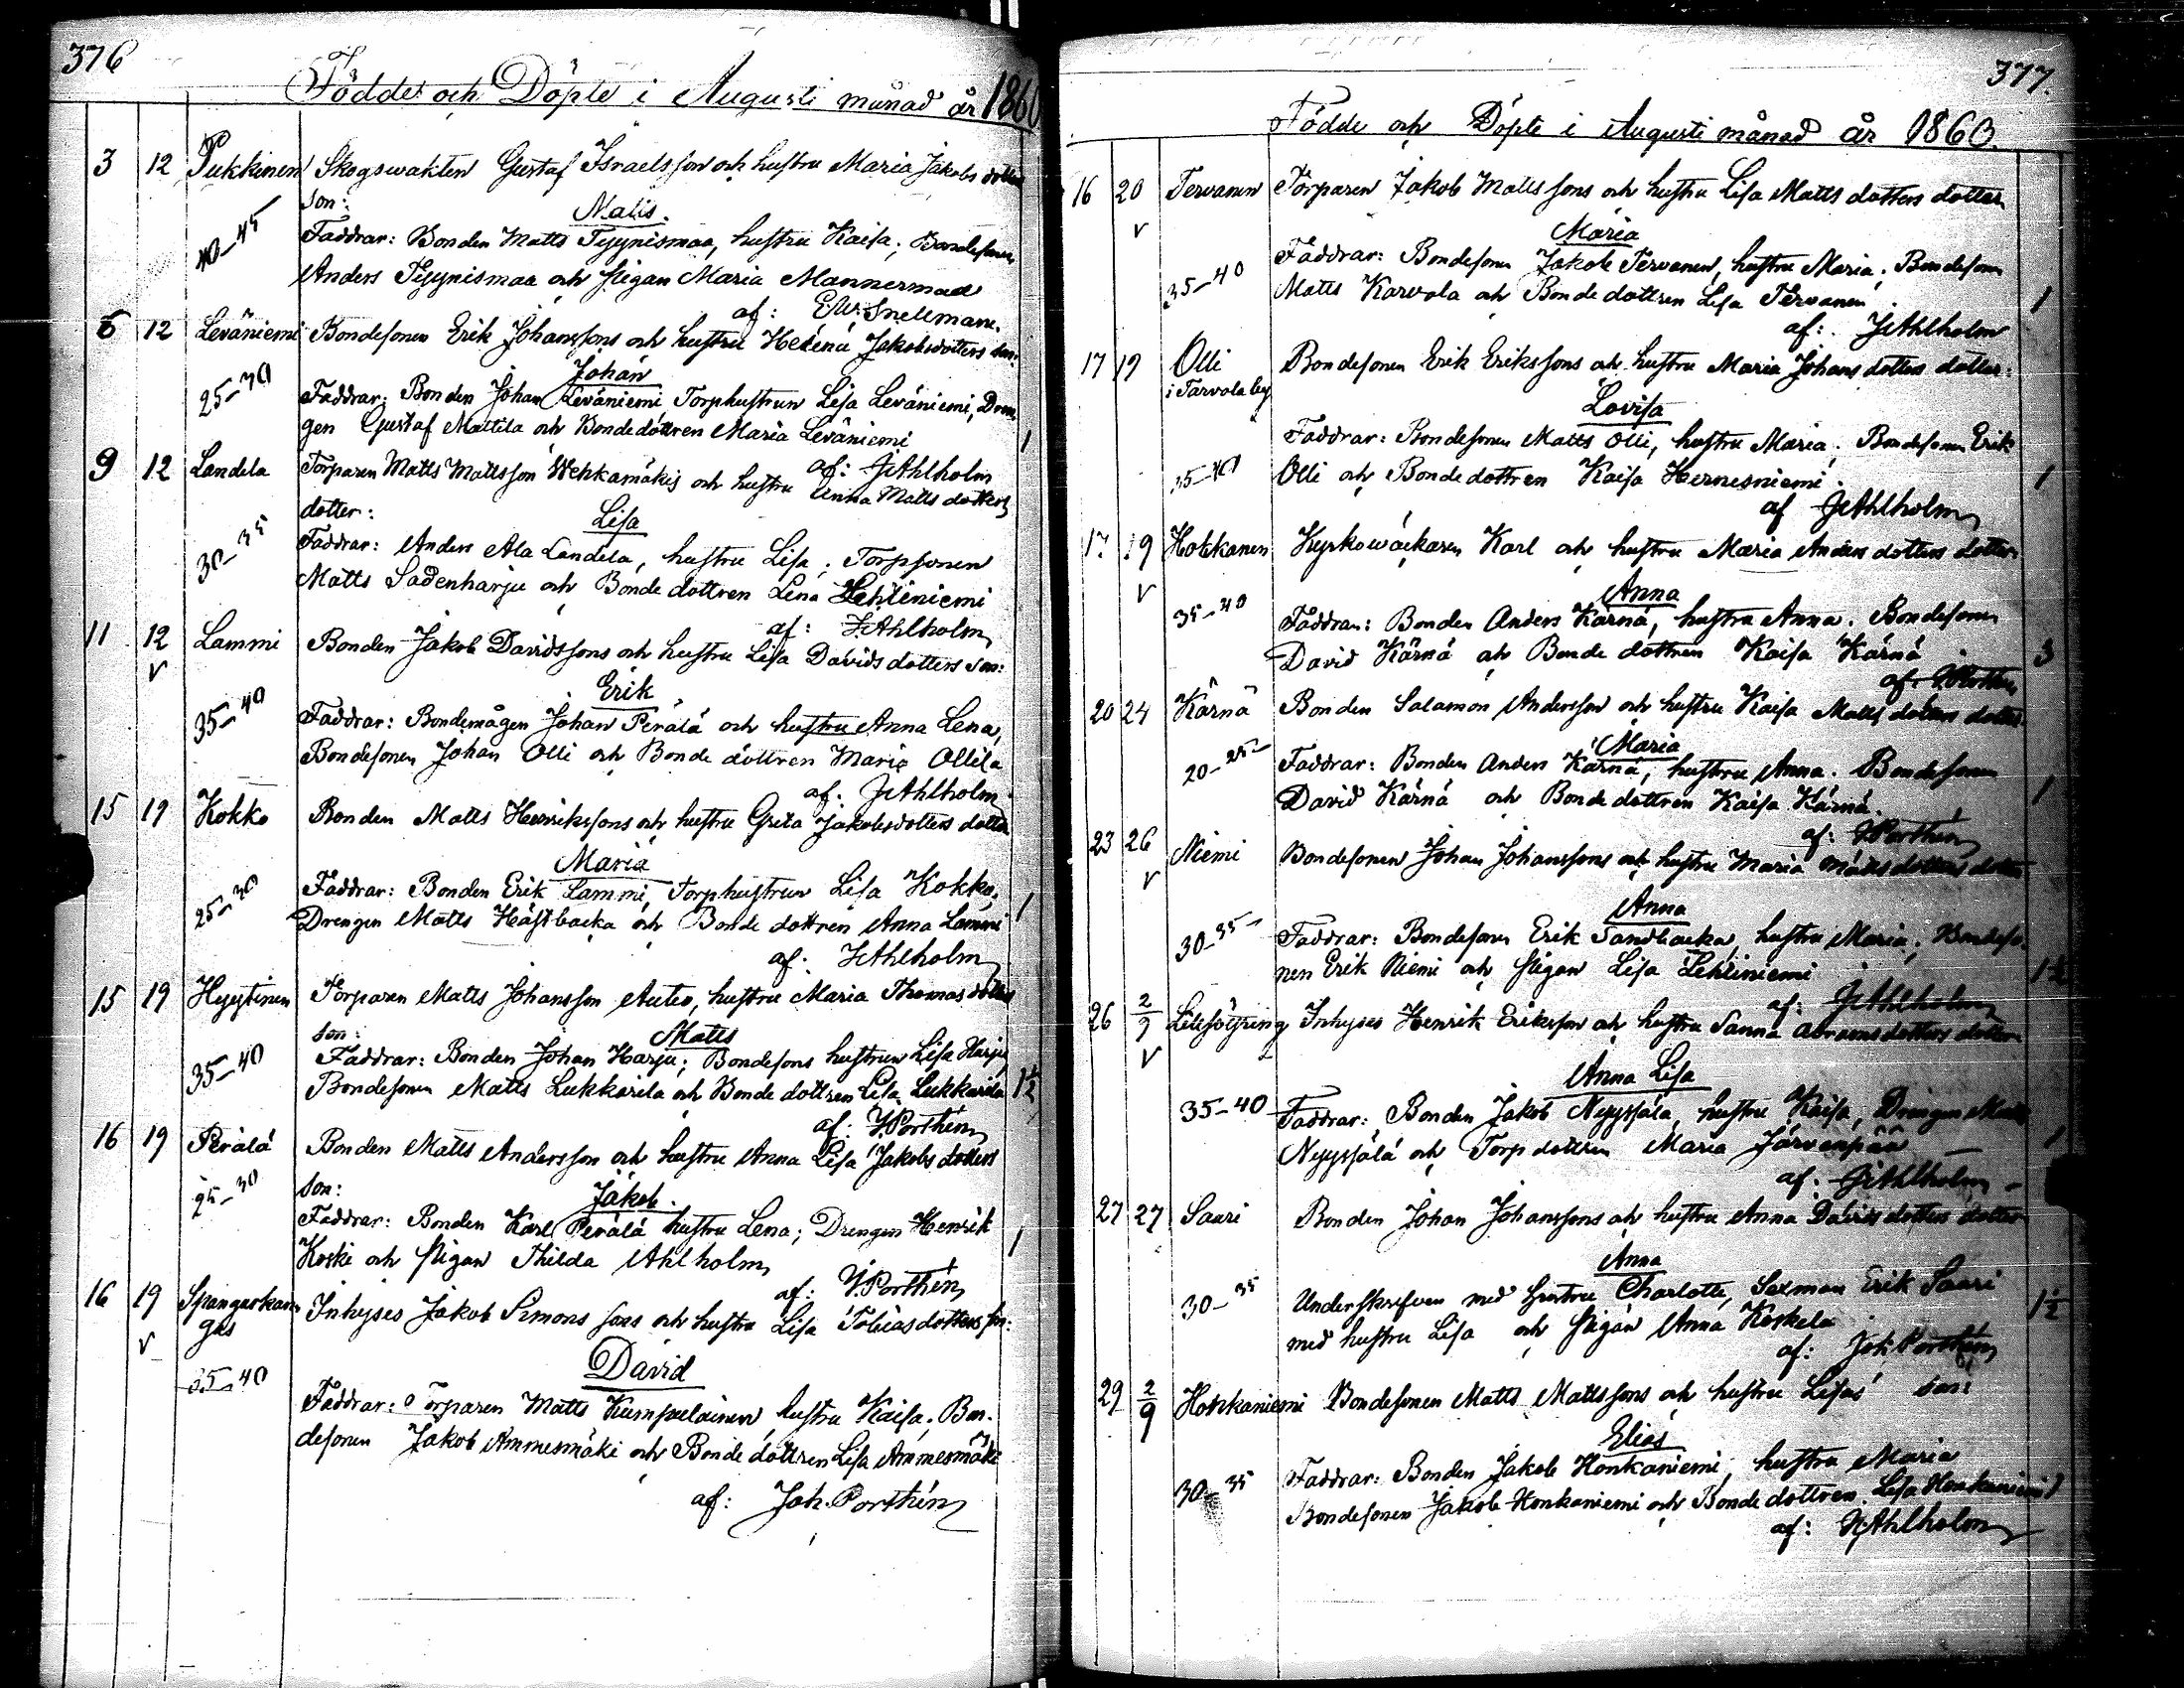 376
Födde och Döpte i Augusti månad år 1860
3 12 Pukkinen Skogswakten Gustaf Israelsson och hustru Maria Jakobs dotters
son:
Matts.
40-45 Faddrar: Bonden Matts Tyynismaa, hustru Kaisa; Bondesonen
Anders Tyynismaa och pigan Maria Mannermaa
af: E.W. Snellman.
6 12 Leväniemi Bondesonen Erik Johanssons och hustru Helena Jakobsdotters son:
Johan
25-30 Faddrar: Bonden Johan Leväniemi Torphustrun Lisa Leväniemi, Dren-
gen Gustaf Mattila och Bondedottren Maria Leväniemi 1
af: J Ahlholm
9 12 Landela Torparen Matts Mattsson Wehkamäkis och hustru Anna Matts dotters
dotter:
Lisa
30-35 Faddrar: Anders Ala Landela, hustru Lisa; Torpsonen
Matts Sadenharju och Bonde dottren Lena Lehtiniemi
af: J Ahlholm
11 12 Lammi Bonden Jakob Davidssons och hustru Lisa Davids dotters son:
v
Erik
35-40 Faddrar: Bondemågen Johan Perälä och hustru Anna Lena,
Bondesonen Johan Olli och Bonde dottren Maria Ollila
af: J Ahlholm
15 19 Kokko Bonden Matts Henrikssons och hustru Greta Jakobsdotters dotter
Maria
25-30 Faddrar: Bonden Erik Lammi, Torphustrun Lisa Kokko,
Drengen Matts Hästbacka och Bonde dottren Anna Lammi 1
af: J Ahlholm
15 19 Hyytinen Torparen Matts Johansson Autio, hustru Maria Thomas dotters
son:
Matts
35-40 Faddrar: Bonden Johan Harju; Bondesons hustrun Lisa Harju,
Bondesonen Matts Lukkarila och Bonde dottren Lisa Lukkarila 1½
af: J. Porthén
16 19 Perälä Bonden Matts Andersson och hustru Anna Lisa Jakobs dotters
son:
Jakob.
25-30 Faddrar: Bonden Karl Perälä hustru Lena; Drengen Henrik
Koski och pigan Thilda Ahlholm 1
af: J. Porthén
16 19 Spangarkan-
gas Inhyses Jakob Simons sons och hustru Lisa Tobias dotters son:
v
David
35-40 Faddrar: Torparen Matts Kumpulainen, hustru Kaisa; Bon-
desonen Jakob Ammesmäki och Bonde dottren Lisa Ammesmäki
af: Joh. Porthén
377.
Födde och Döpte i Augusti månad år 1860.
16 20 Tervanen Torparen Jakob Matts sons och hustru Lisa Matts dotters dotter
v
Maria
35-40 Faddrar: Bondesonen Jakob Tervanen, hustru Maria; Bondesonen
Matts Karvola och Bonde dottren Lisa Tervanen. 1
af: J Ahlholm
17 19 Olli Bondesonen Erik Erikssons och hustru Maria Johans dotters dotter:
i Tarvola by
Lovisa
Faddrar: Bondesonen Matts Olli, hustru Maria; Bondesonen Erik
35-40 Olli och Bonde dottren Kaisa Hernesniemi. 1
af J Ahlholm
17 19 Hotakanen Kyrkowäkaren Karl och hustru Maria Anders dotters dotter
v
Anna
35-40 Faddrar: Bonden Anders Kärnä, hustru Anna. Bondesonen
David Kärnä och Bonde dottren Kaisa Kärnä 3
af: J. Porthén
20 24 Kärnä Bonden Salamon Andersson och hustru Kaisa Matts dotters dotter
Maria
20-25 Faddrar: Bonden Anders Kärnä, hustru Anna. Bondesonen
David Kärnä och Bonde dottren Kaisa Kärnä. 1
af: J Porthén
23 26 Niemi Bondesonen Johan Johanssons och hustru Maria Matts dotters dotter
v
Anna
30-35 Faddrar: Bondesonen Erik Sandbacka, hustru Maria; Bondeso-
nen Erik Niemi och pigan Lisa Lehtiniemi 1½
af: J Ahlholm
26 2/9 Inhyses Henrik Eriksson och hustru Sanna Abramsdotters dotter
v
Anna Lisa
35-40 Faddrar: Bonden Jakob Nyyssälä, hustru Kaisa, Drengen Matts
Nyyssälä och Torp dottren Maria Järvenpää 1
af: J Ahlholm
27 27 Saari Bonden Johan Johanssons och hustru Anna Davids dotters dotter
Anna
30-35 Underskrifven med hustru Charlotte, Sexman Erik Saari
med hustru Lisa och pigan Anna Koskela 1½
af: Joh. Porthén
29 2/9 Honkaniemi Bondesonen Matts Mattssons och hustru Lisas son:
Elias
30-35 Faddrar: Bonden Jakob Honkaniemi, hustru Maria
Bondesonen Jakob Honkaniemi och Bonde dottren Lisa Honkaniemi
af: J Ahlholm